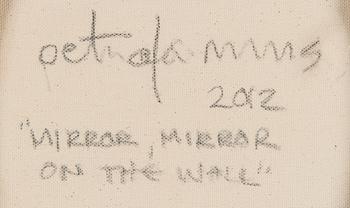 petra
2012
"MIRROR, MIRROR
ON THE WALL"